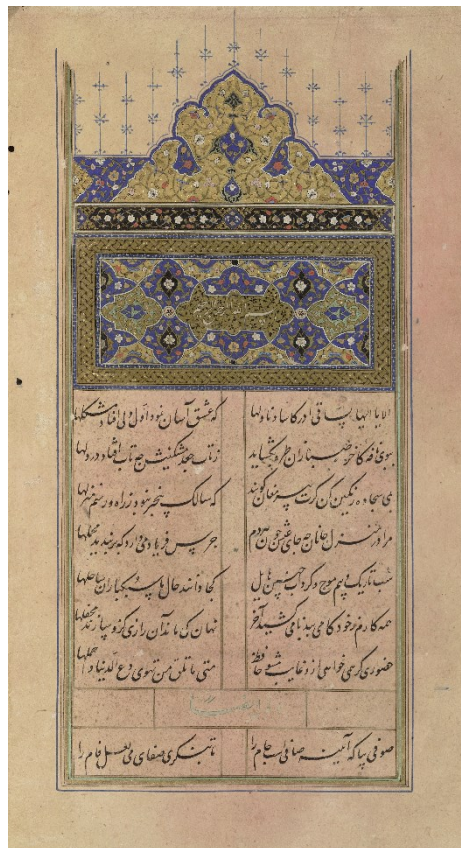 الا یا ایها الساقی ادر کاسا و ناولها که عشق آسان نمود اول ولی افتاد مشکلها
ببوی نافه کاخر صبا زان طره بگشاید ز تاب جعد مشکینش چه تاب افتاد در دلها
بمی سجاده رنگین کن گرت پیر مغان گوید که سالک بیخبر نبود ز راه و رسم منزلها
مرا در منزل جانان چه جای عیش چون هر دم جرس فریاد میدارد که بربندید محملها
شب تاریک و بیم موج و گردابی چنین هایل کجا دانند حال ما سبکباران ساحلها
همه کارم ز خود کامی ببدنامی کشید آخر نهان کی ماند آن رازی کزو سازند محفلها
حضوری گر همی خواهی ازو غایب مشو حافظ متی ما تلق من تهوی دع الدنیا و اهملها
صوفی بیا که آینه صافیست جام را تا بنگری صفای می لعل فام را